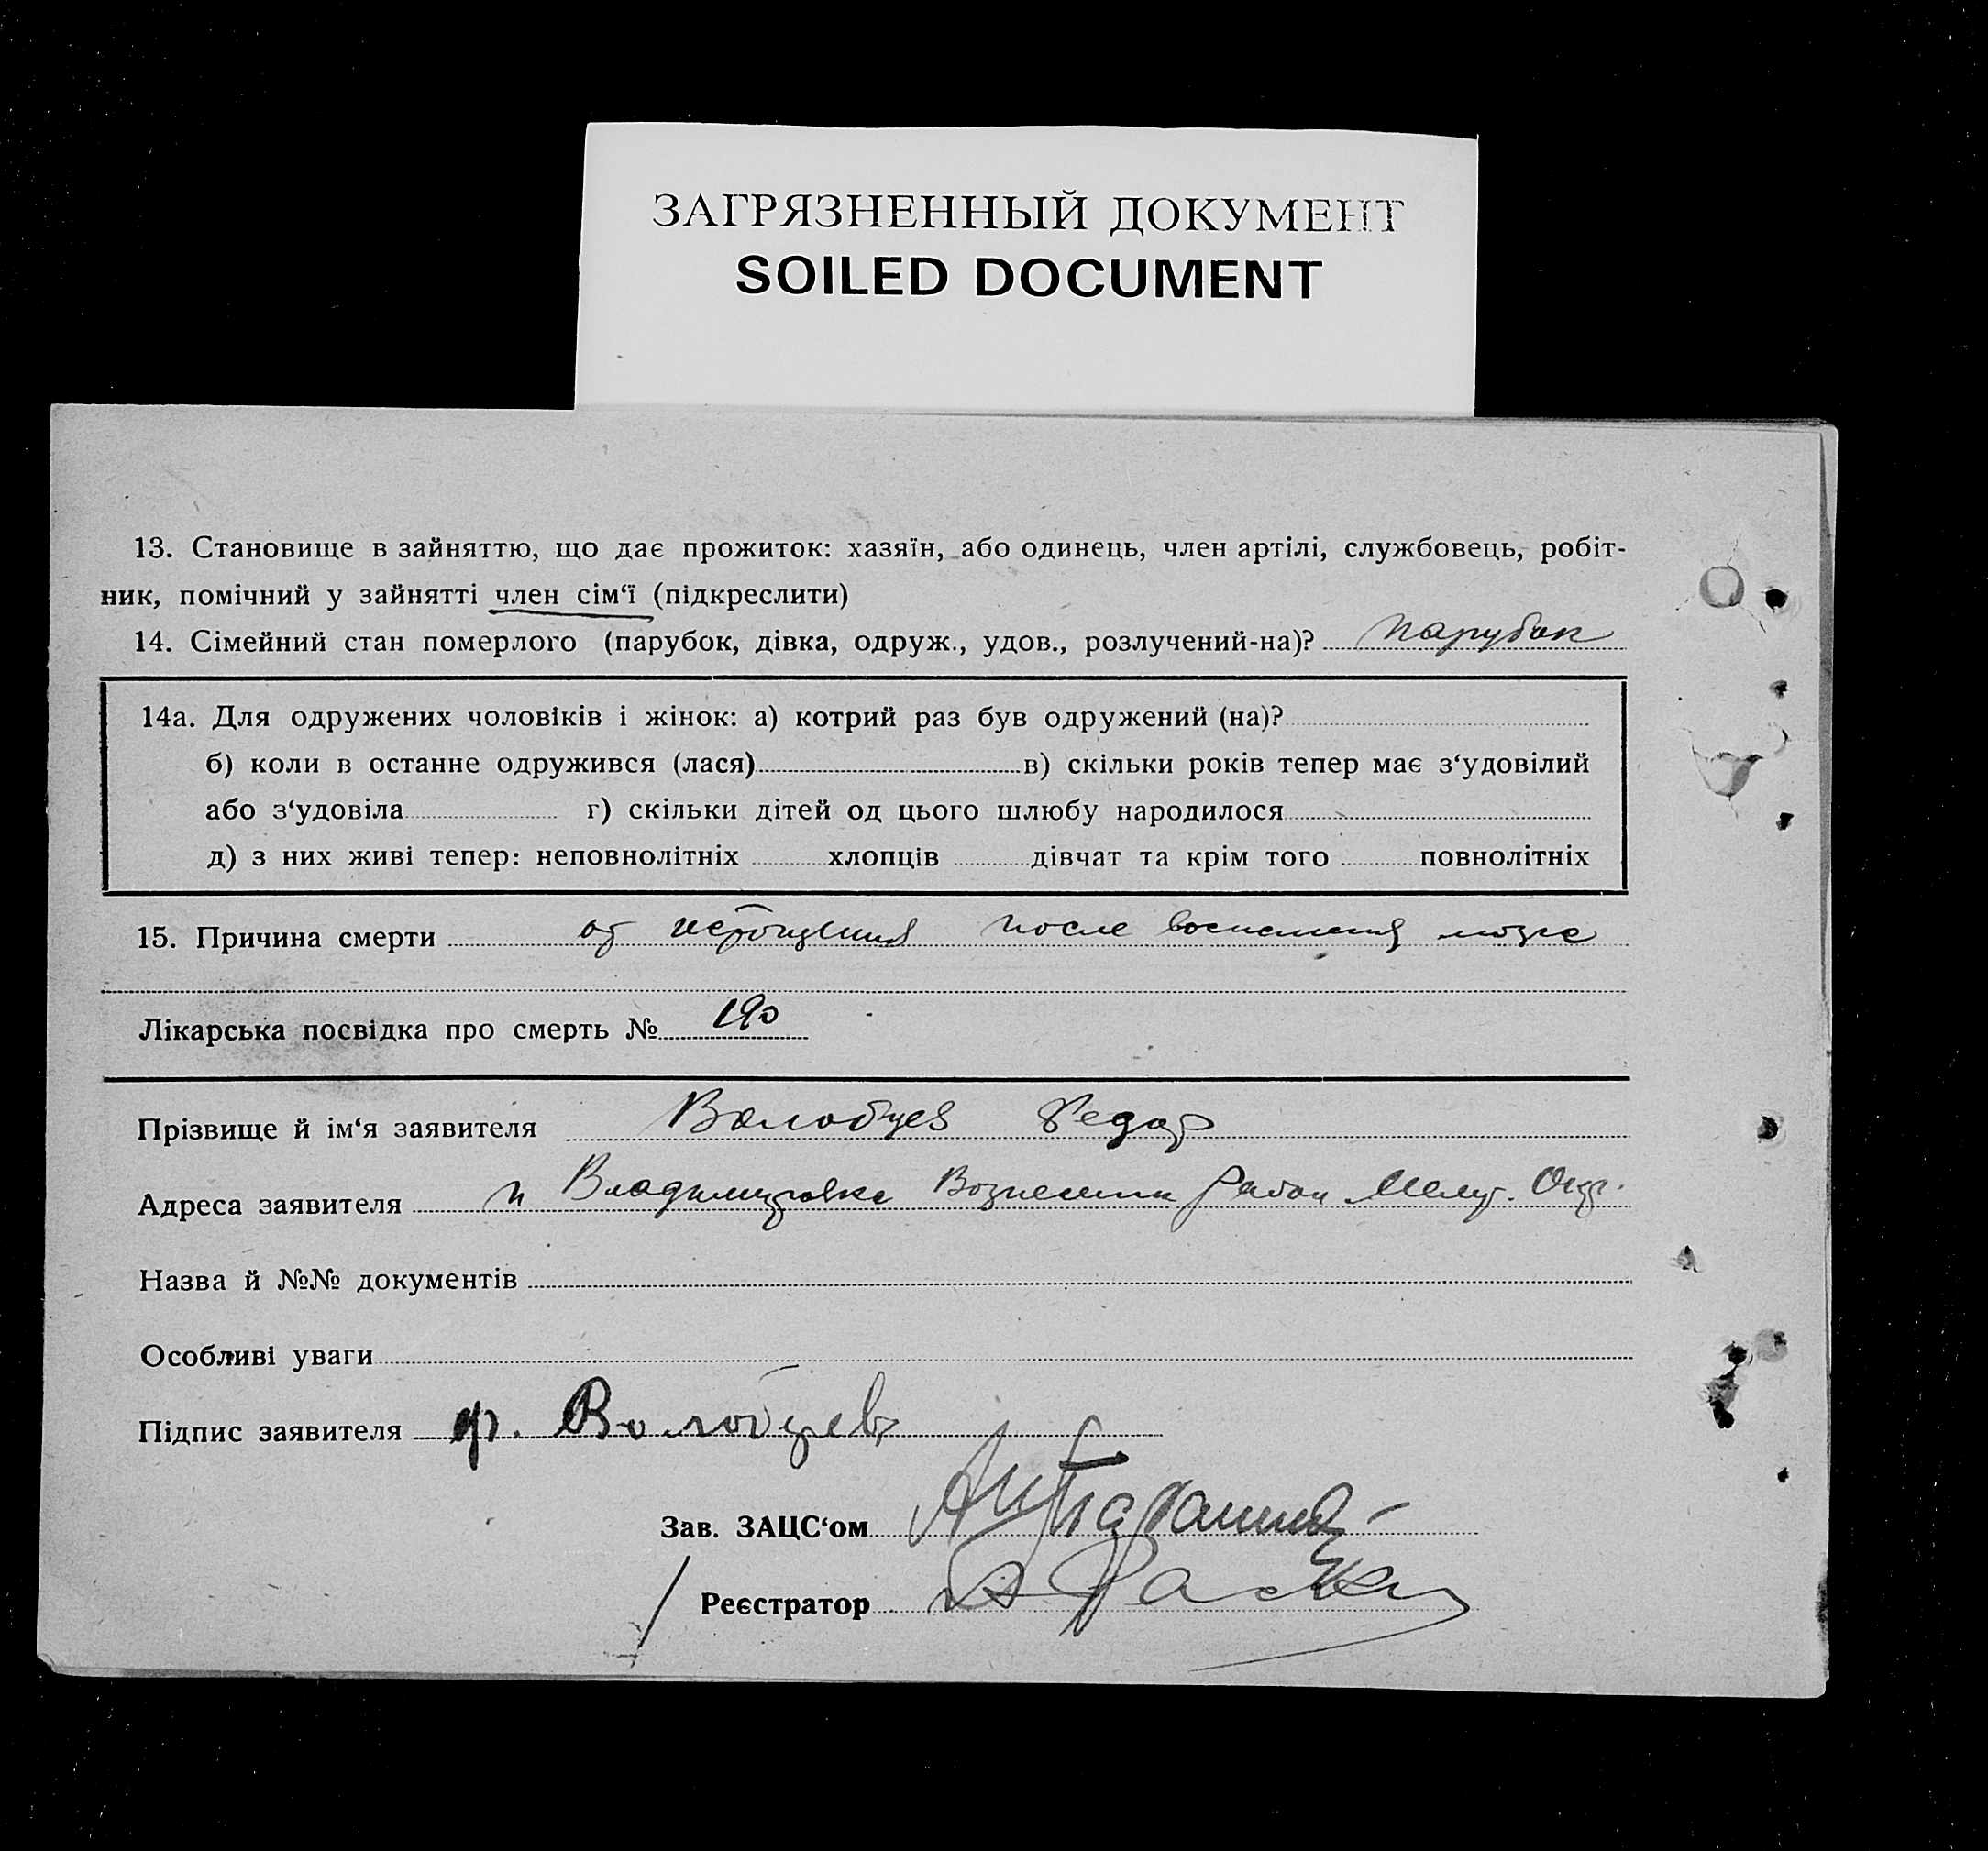 ЗАГРЯЗНЕННЫЙ ДОКУМЕНТ
SOILED DOCUMENT
13. Становище в зайняттю, що дає прожиток: хазяїн, або одинець, член артілі, службовець, робіт-
ник, помічний у зайнятті член сім‘ї (підкреслити)
14. Сімейний стан померлого (парубок, дівка, одруж., удов., розлучений-на)? парубок
14а. Для одружених чоловіків і жінок: а) котрий раз був одружений (на)?
б) коли в останнє одружився (лася) в) скільки років тепер має з‘удовілий
або з‘удовіла г) скільки дітей од цього шлюбу народилося
д) з них живі тепер: неповнолітніх хлопців дівчат та крім того повнолітніх
15. Причина смерти от истощения после воспаления мозга
Лікарська посвідка про смерть № 190
Прізвище й ім‘я заявителя Волобуев Федор
Адреса заявителя Владимировка Вознесенск район Мелит. Окр.
Назва й №№ документів
Особливі уваги
Підпис заявителя ф. Волобуев
Зав. ЗАЦС‘ом
Реєстратор